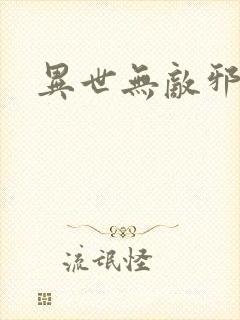 異世無敵邪
流氓怪